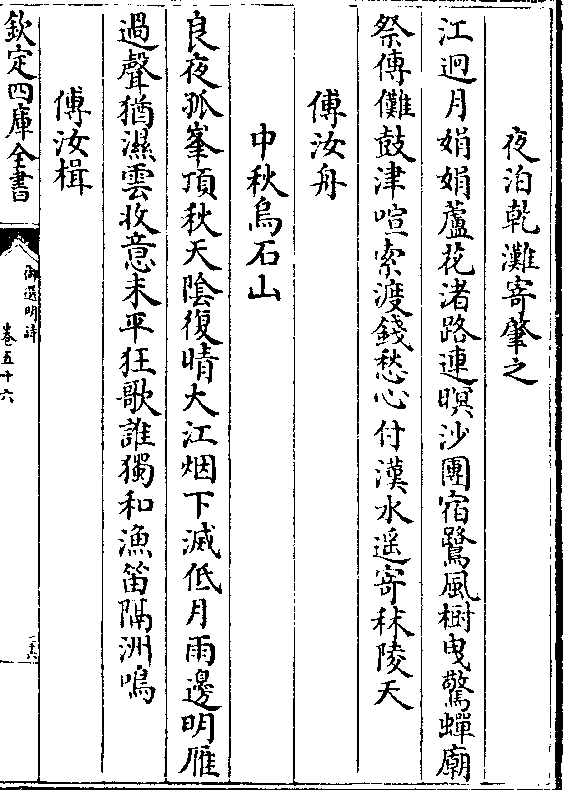 夜泊乾灘寄肇之
江迥月娟娟蘆花渚路連暝沙團宿鷺風樹曳驚蟬廟
祭傳儺鼓津喧索渡錢愁心付漢水遥寄秣陵天
傅汝舟
中秋烏石山
良夜孤峯頂秋天陰復晴大江烟下滅低月雨邊明雁
過聲猶濕雲收意未平狂歌誰獨和漁笛隔洲鳴
傅汝楫
欽定四庫全書
御選明詩
卷五十六